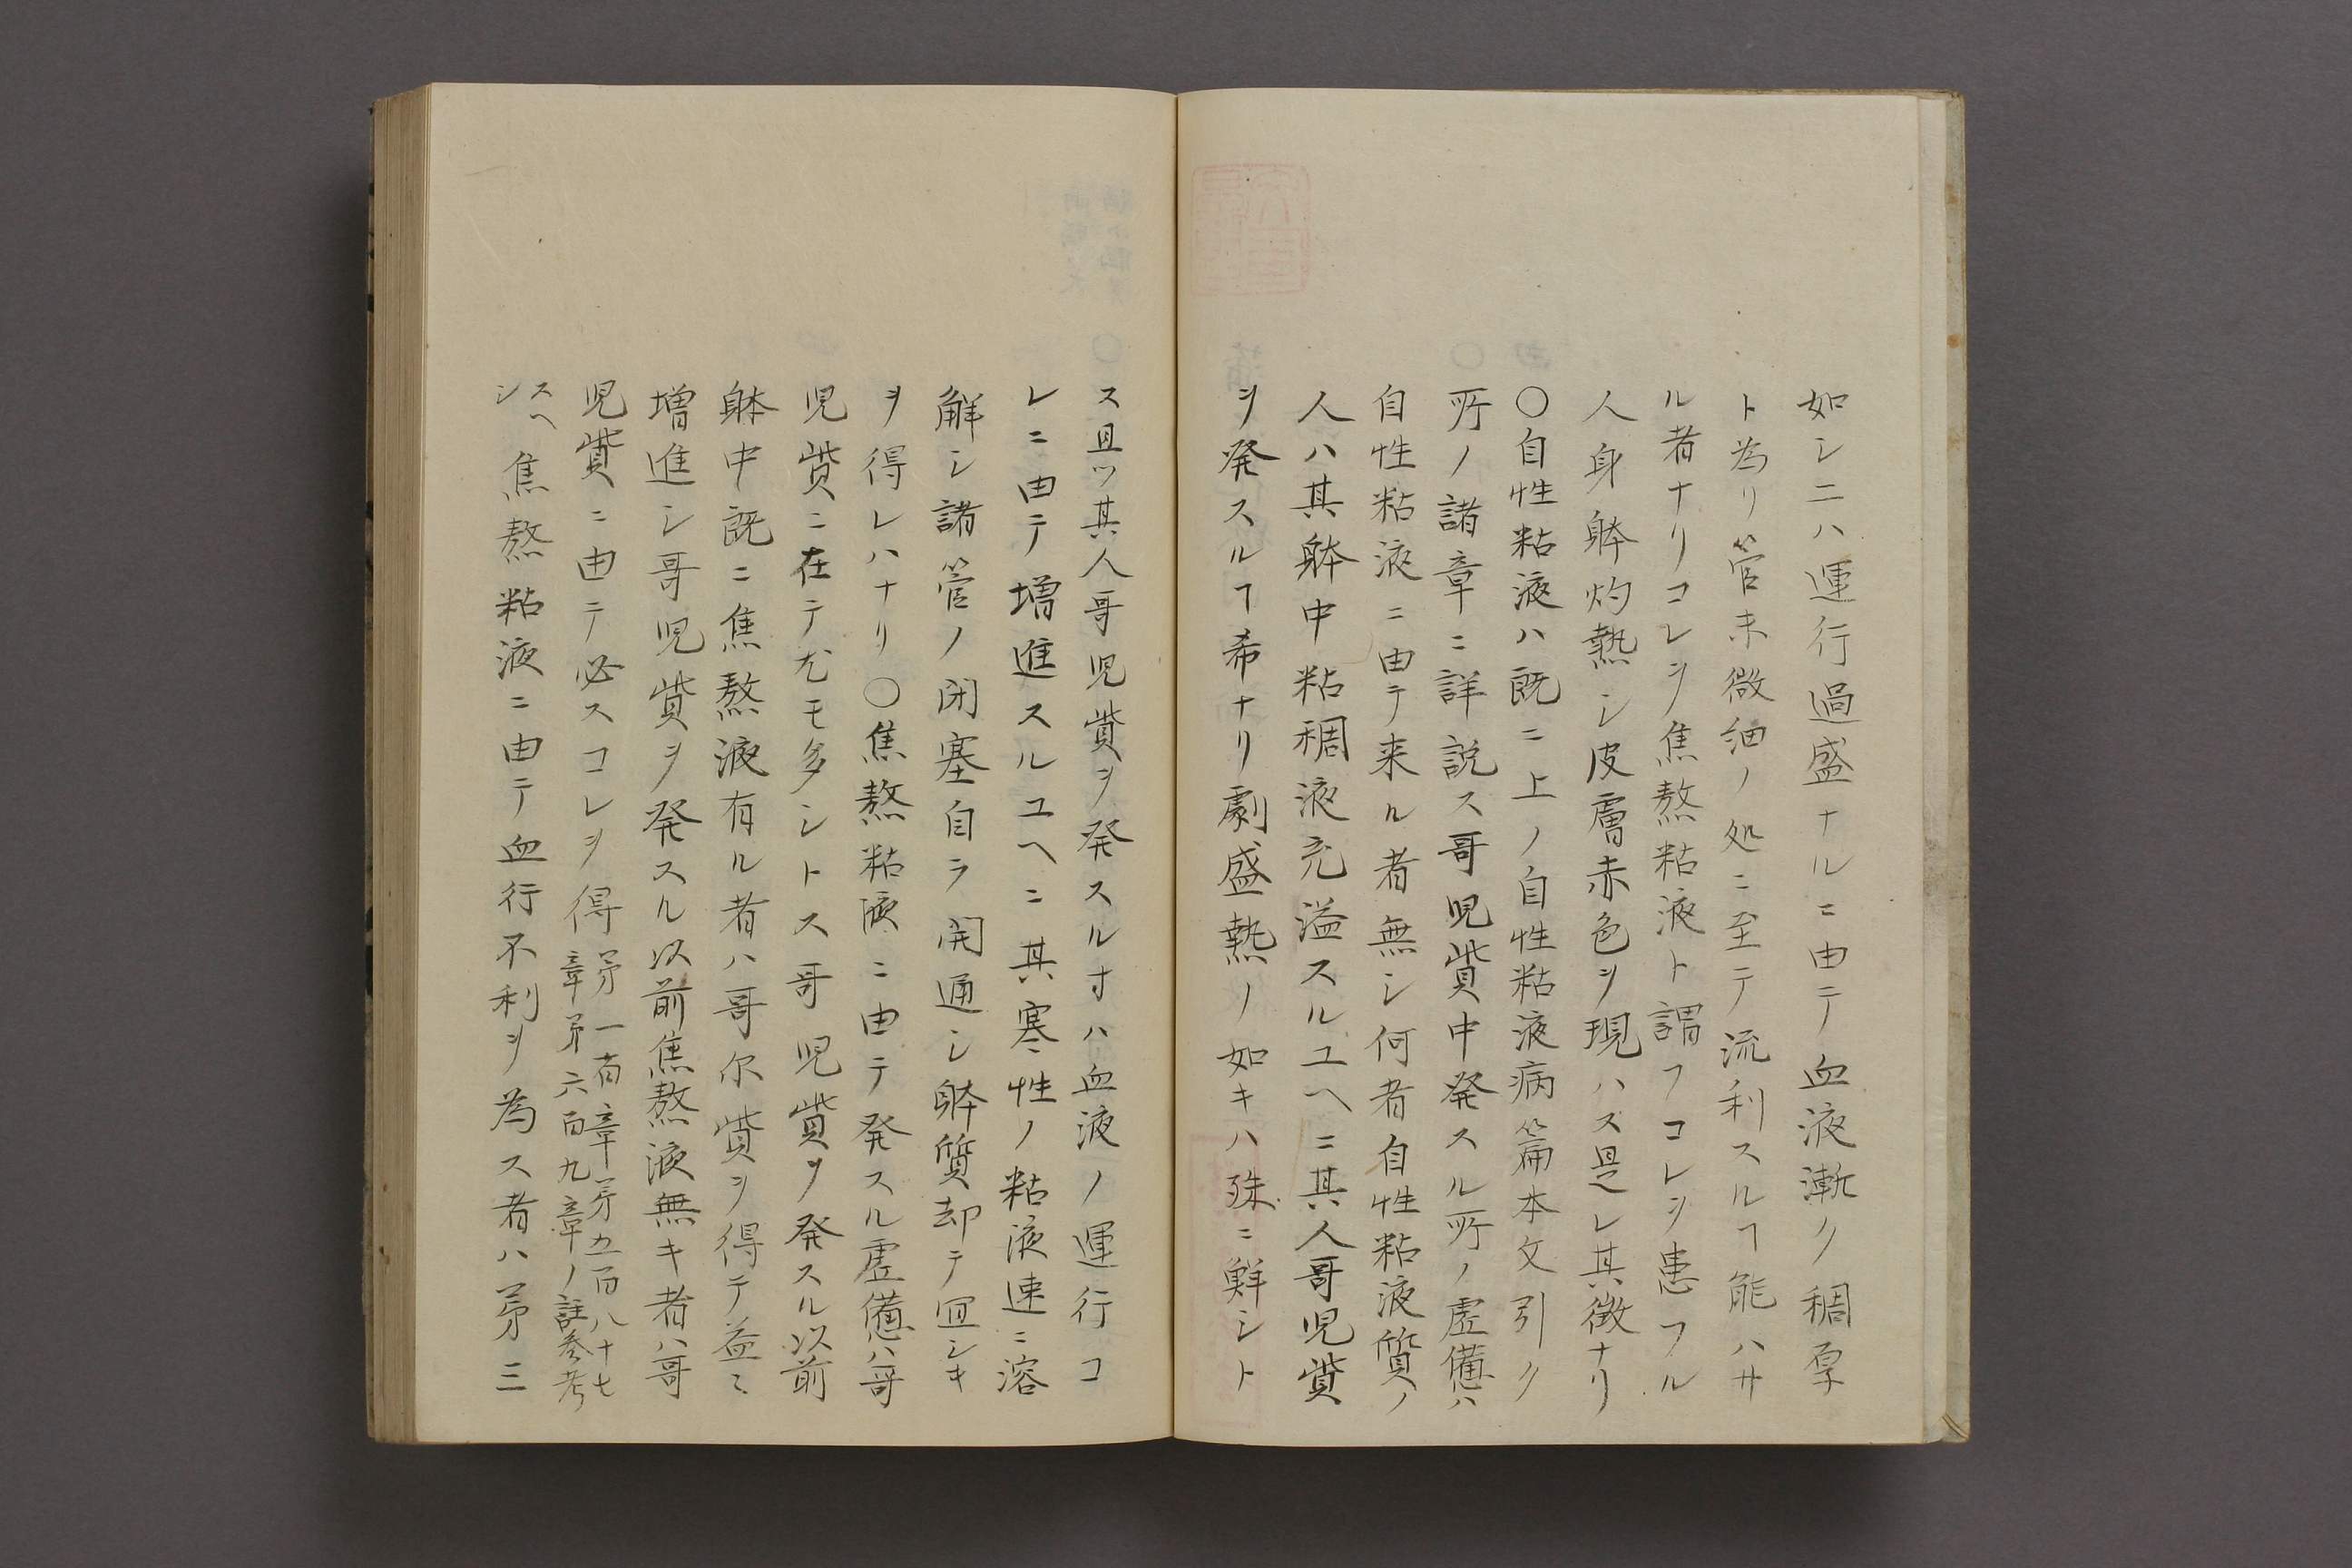 如シニハ運行過盛ナルニ由テ血液漸ク稠厚
ト為リ管末微細ノ処ニ至テ流利スルヿ能ハサ
ル者ナリコレヲ焦熬粘液ト謂フコレヲ患フル
人身躰灼熱シ皮膚赤色ヲ現ハス是レ其徴ナリ
〇自性粘液ハ既ニ上ノ自性粘液病篇本文引ク
所ノ諸章ニ詳説ス哥児貲中発スル所ノ虚憊ハ
自性粘液ニ由テ来ル者無シ何者自性粘液質ノ
人ハ其躰中粘稠液充溢スルユヘニ其人哥児貲
ヲ発スルヿ希ナリ劇盛熱ノ如キハ殊ニ鮮シト
ス且ツ其人哥児貲ヲ発スル寸ハ血液ノ運行コ
レニ由テ増進スルユヘニ其寒性ノ粘液速ニ溶
解シ諸管ノ閉塞自ラ開通シ躰質却テ冝シキ
ヲ得レハナリ〇焦熬粘液ニ由テ発スル虚憊ハ哥
児貲ニ在テ尤モ多シトス哥児貲ヲ発スル以前
躰中既ニ焦熬液有ル者ハ哥尓貲ヲ得テ益〻
増進シ哥児貲ヲ発スル以前焦熬液無キ者ハ哥
児貲ニ由テ必スコレヲ得
第一百章第五百八十七
章第六百九章ノ註参考
スヘ
シ
焦熬粘液ニ由テ血行不利ヲ為ス者ハ第三